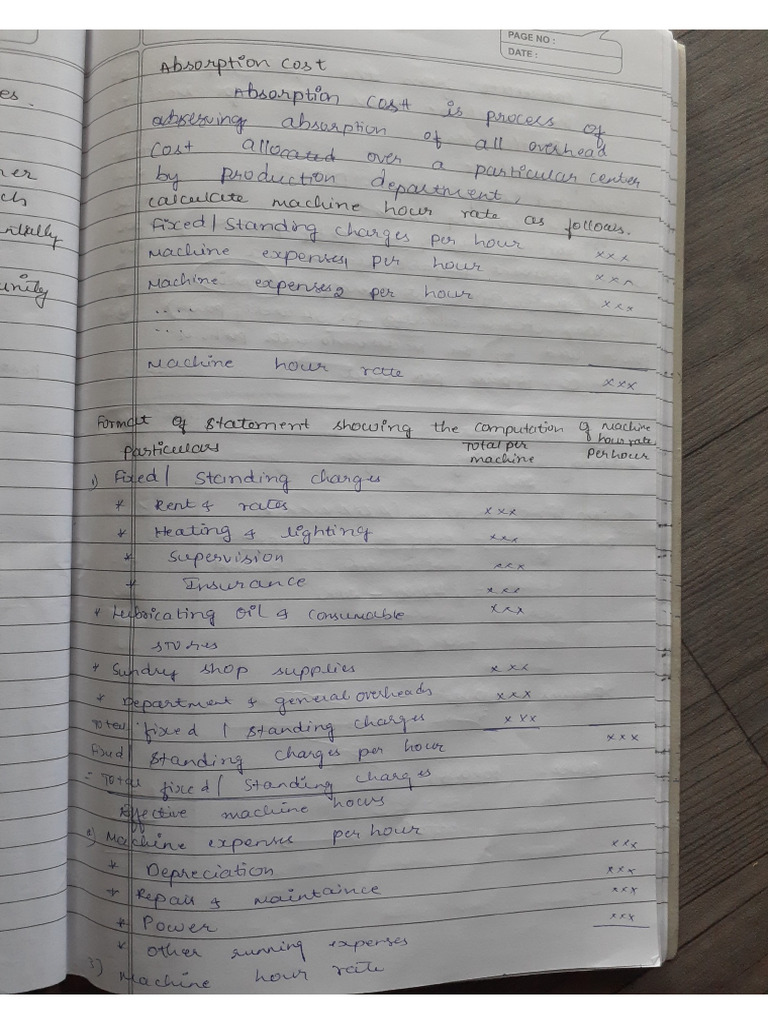 PAGE NO :
DATE :
es.
ner
ch
entially
unity
Absorption cost
Absorption cost is process of
absorption of all overhead
cost allocated over a particular center
by production department,
calculate machine hour rate as follows.
Fixed / Standing charges per hour xxx
Machine expenses1 per hour xxx
Machine expenses2 per hour xxx
....
...
Machine hour rate xxx
Format of statement showing the computation of machine hour rate
Particulars Total per machine Per hour
1) Fixed / Standing charges
* Rent & rates xxx
* Heating & lighting xxx
* Supervision xxx
* Insurance xxx
* Lubricating oil & consumable xxx
stores
* Sundry shop supplies xxx
* Department & general overheads xxx
Total fixed / standing charges xxx
Fixed / standing charges per hour xxx
= Total fixed / standing charges
Effective machine hours
2) Machine expenses per hour
* Depreciation xxx
* Repair & maintaince xxx
* Power xxx
* other running expenses xxx
3) Machine hour rate